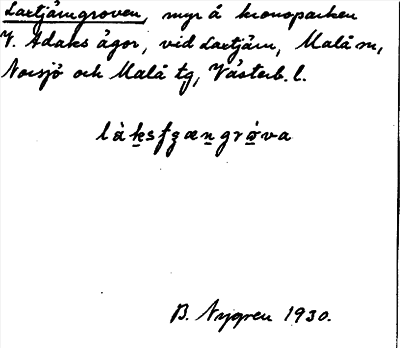 Laxtjärngroven, myr å kronoparken
V. Adaks ägor, vid Laxtjärn, Malå sn,
Norsjö och Malå tg, Västerb. l.
làk̲sfʒæn̲grǿ̲va
B. Nygren 1930.